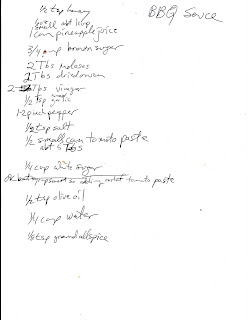 BBQ Sauce
1/2 tsp
small abt 1 cup
1 can pineapple juice
3/4 cup brown sugar
2 Tbs molases
2 Tbs dried onion
2 Tbs vinegar
1/2 tsp garlic
1-2 pinch pepper
1/2 tsp salt
1/2 small can tomato paste
abt 5 Tbs
1/4 cup white sugar
tomato paste
1/2 tsp olive oil
1/4 cup water
1/8 tsp ground allspice